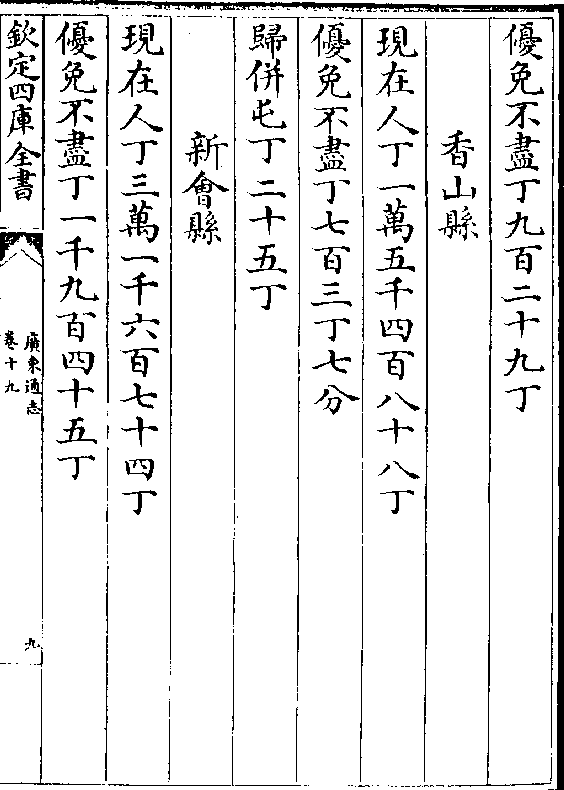 優免不盡丁九百二十九丁
香山縣
現在人丁一萬五千四百八十八丁
優免不盡丁七百三丁七分
歸併屯丁二十五丁
新會縣
現在人丁三萬一千六百七十四丁
優免不盡丁一千九百四十五丁
欽定四庫全書
廣東通志
卷十九
九